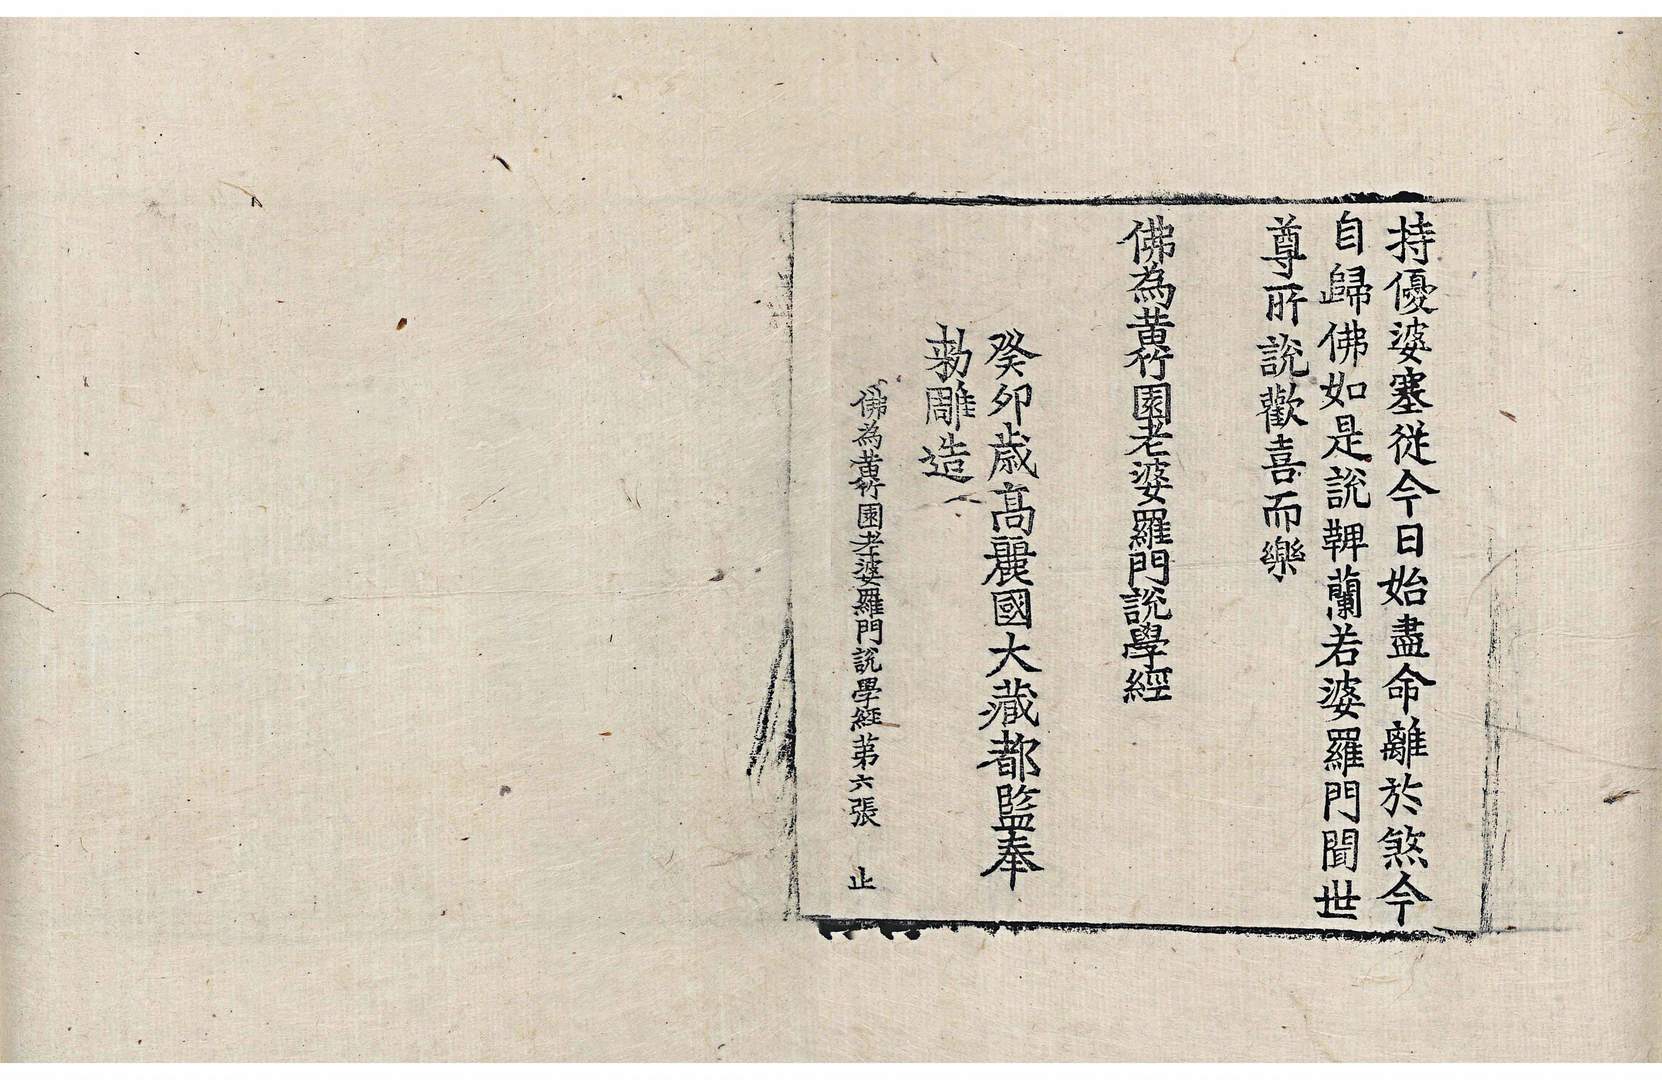 持優婆塞從今日始盡命離於煞今
自歸佛如是說鞞蘭若婆羅門聞世
尊所說歡喜而樂
佛為黃竹園老婆羅門說學經
癸卯歲高麗國大藏都監奉
勑雕造
佛為黃竹園老婆羅門說學經第六張 止